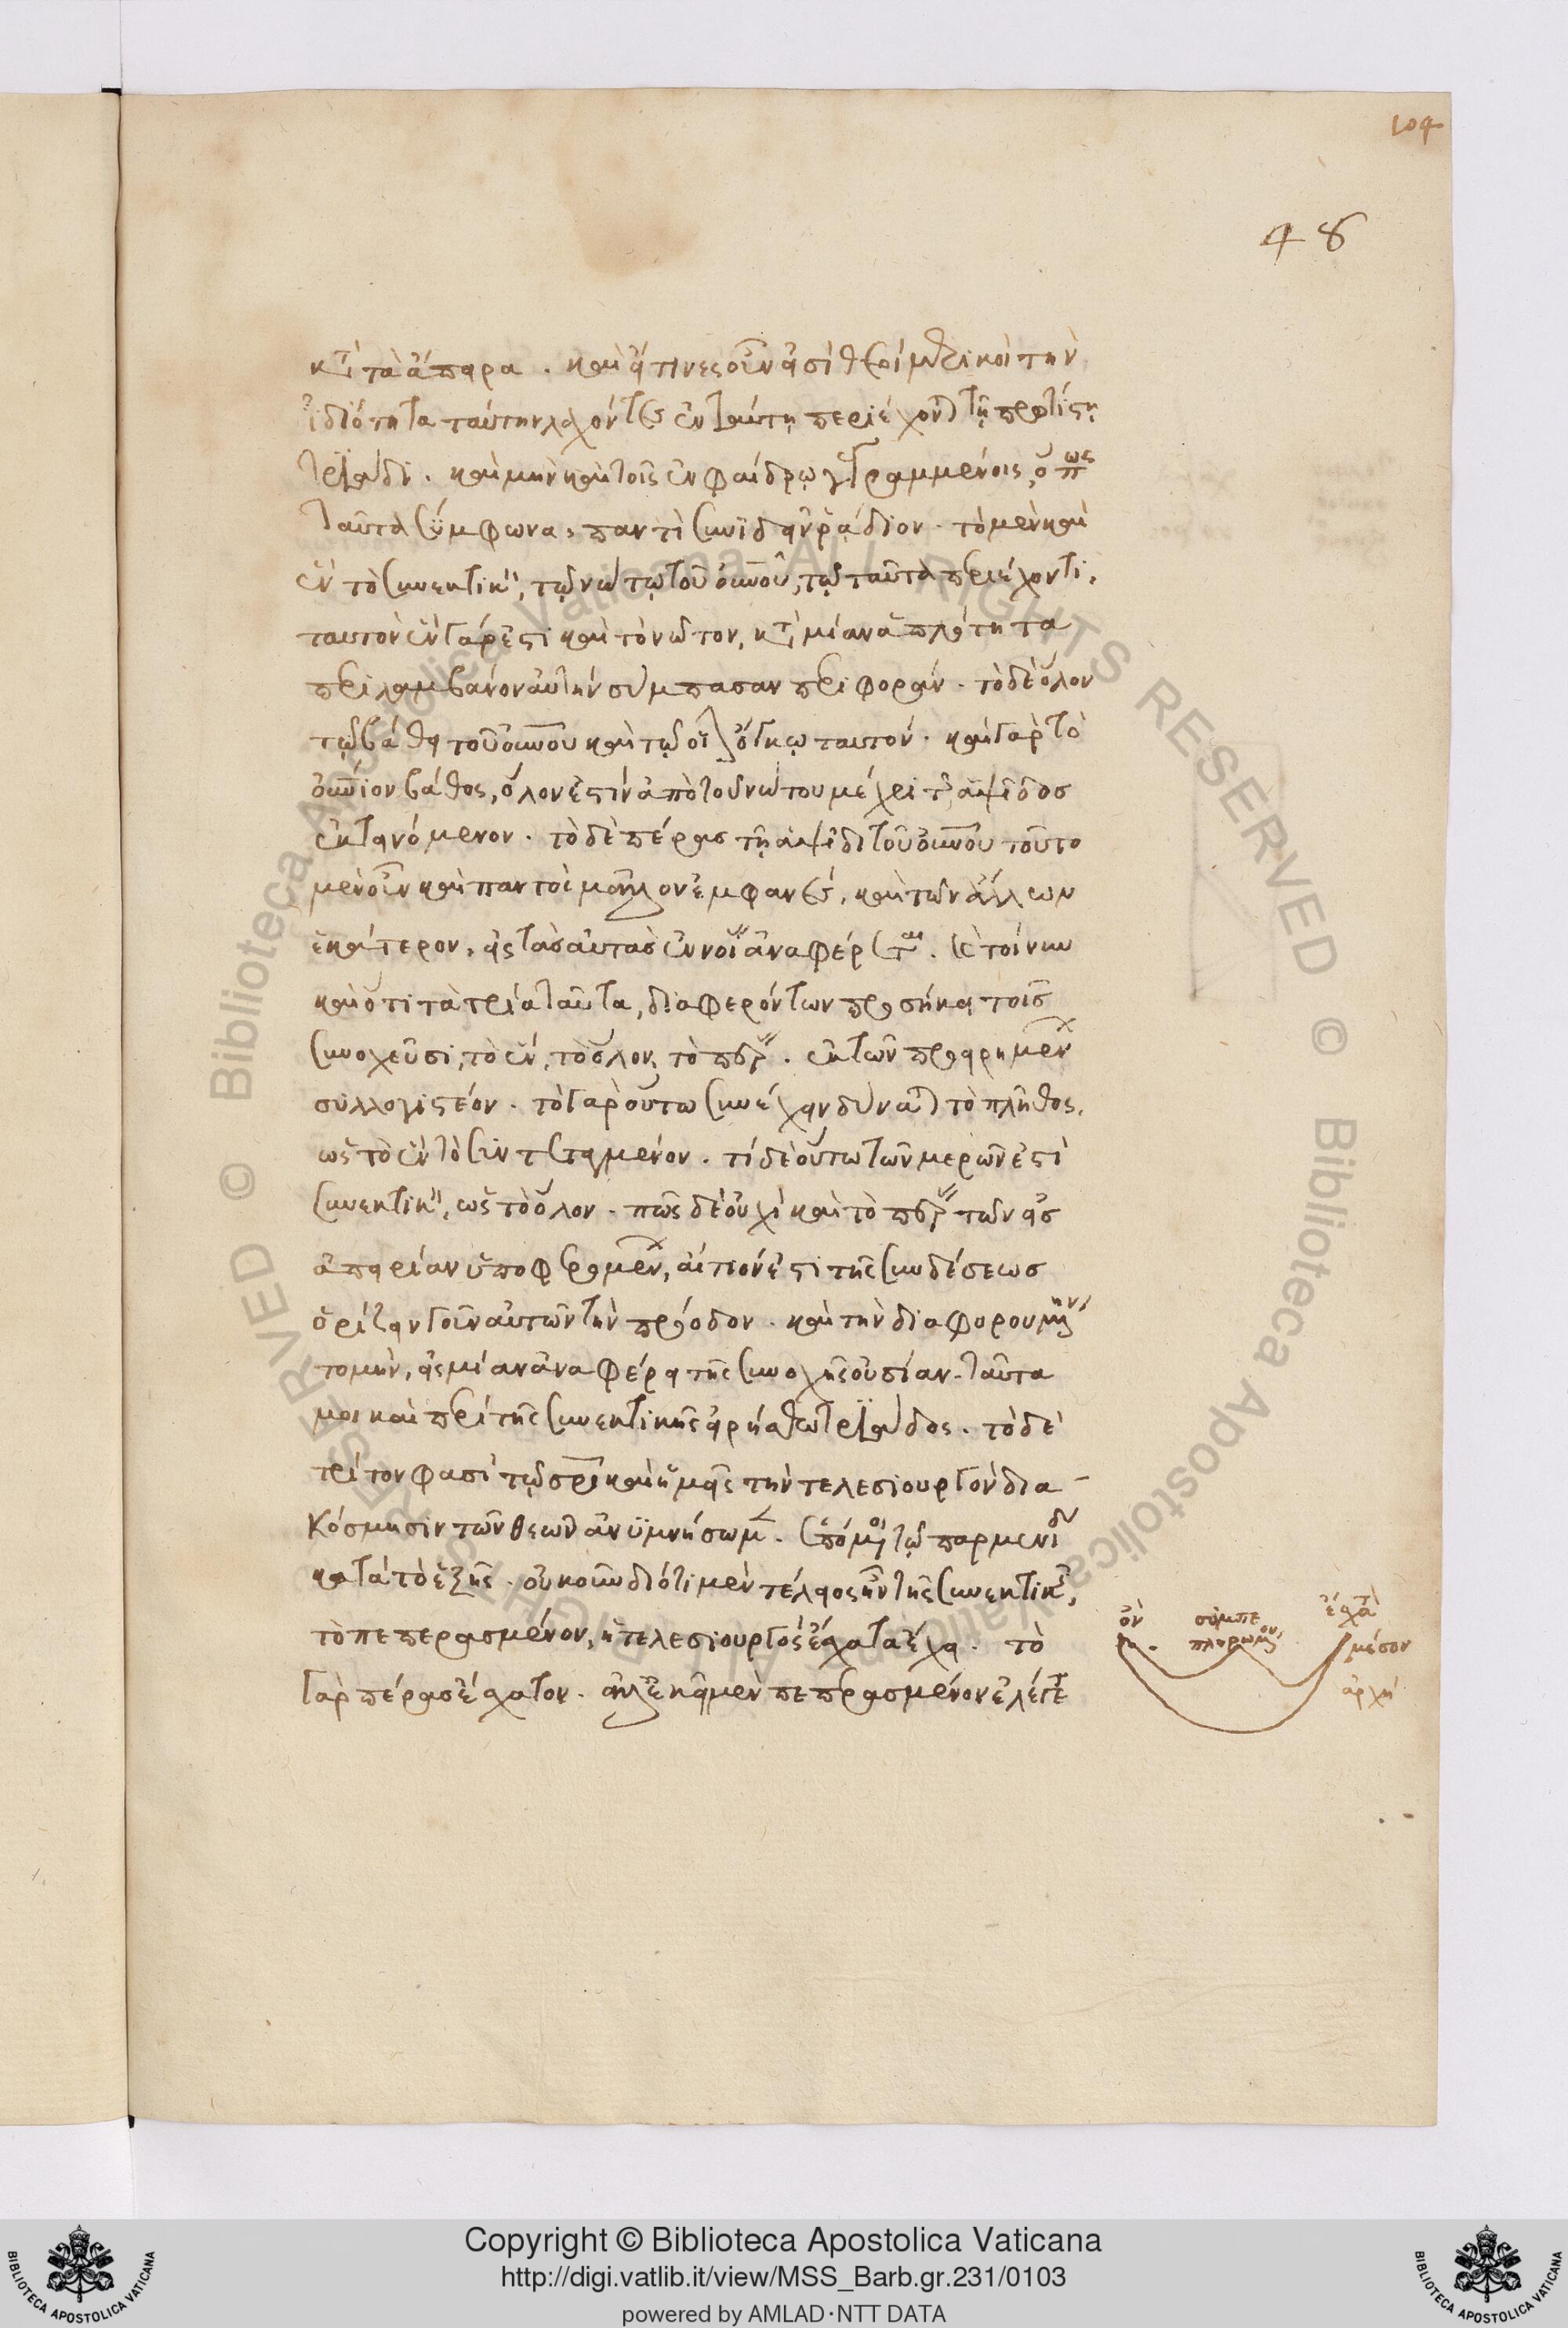 104
48
κατὰ τὰ ἄπειρα. καὶ εἴ τινες οὖν εἰσὶ θεοὶ μεριστικοὶ τὴν
ἰδιότητα ταύτην λαχόντες ἐν ταύτῃ περιέχονται τῇ πρωτίστῃ
τριάδι. καὶ μὴν καὶ τοῖς ἐν φαίδρῳ γεγραμμένοις, ὅπως
ταῦτα σύμφωνα, παντὶ συνιδεῖν ῥᾴδιον. τὸ μὲν καὶ
ἓν τὸ συνεκτικόν, τῷ νώτῳ τοῦ οὐρανοῦ, τῷ ταῦτα περιέχοντι,
ταυτόν ἓν γάρ ἐστι καὶ τὸ νῶτον, κατὰ μίαν ἁπλότητα
περιλαμβάνον αὐτὴν σύμπασαν περιφοράν. τὸ δὲ ὅλον
τῷ βάθει τοῦ οὐρανοῦ καὶ τῷ οἷον ὄγκῳ ταυτόν. καὶ γὰρ τὸ
οὐράνιον βάθος, ὅλον ἐστὶν ἀπὸ τοῦ νώτου μέχρι τῆς ἁψῖδος
ἐκτεινόμενον. τὸ δὲ πέρας τῇ ἁψῖδι τοῦ οὐρανοῦ τοῦτο
μὲν οὖν καὶ παντοὶ μᾶλλον ἐμφανές, καὶ τῶν ἄλλων
ἑκάτερον, εἰς τὰς αὐτὰς ἐννοίας ἀναφέρεται.
καὶ ὅτι τὰ τρία ταῦτα, διαφερόντων προσήκει τοῖς
συνοχεῦσι, τὸ ἕν, τὸ ὅλον, τὸ πέρας. ἐκ τῶν προειρημένων
συλλογιστέον. τὸ γὰρ οὕτω συνέχειν δύναται τὸ πλῆθος,
ὡς τὸ ἓν τὸ συντεταγμένον. τί δὲ οὕτω τῶν μερῶν ἐστὶ
συνεκτικόν, ὡς τὸ ὅλον. πῶς δὲ οὐχὶ καὶ τὸ πέρας τῶν εἰς
ἀπειρίαν ὑποφερομένων, αἴτιόν ἐστι τῆς συνδέσεως
ὁρίζει γοῦν αὐτῶν τὴν πρόοδον. καὶ τὴν διαφορουμένην
τομήν, εἰς μίαν ἀναφέρει τῆς συνοχῆς οὐσίαν. ταῦτα
μοι καὶ περὶ τῆς συνεκτικῆς εἰρήσθω τριάδος. τὸ δὲ
τρίτον φασὶ τῷ σωτῆρι καὶ ἡμεῖς τὴν τελεσιουργὸν δια-
κόσμησιν τῶν θεῶν ἀνυμνήσωμεν. ἑπόμενοι τῷ παρμενίδῃ
κατὰ τὸ ἑξῆς. οὐκοῦν διότι μὲν τέλειος ἦν τῆς συνεκτικῆς,
τὸ πεπερασμένον, ἡ τελεσιουργὸς ἔσχατα ἔχει. τὸ
γὰρ πέρας ἔσχατον. ἀλλ' ἐκεῖ μὲν πεπερασμένον ἐλέγετο
ὄν
συμπε
πληρωμένον
ἔσχατα
μέσον
ἀρχή
Copyright © Biblioteca Apostolica Vaticana
http://digi.vatlib.it/view/MSS_Barb.gr.231/0103
powered by AMLAD·NTT DATA